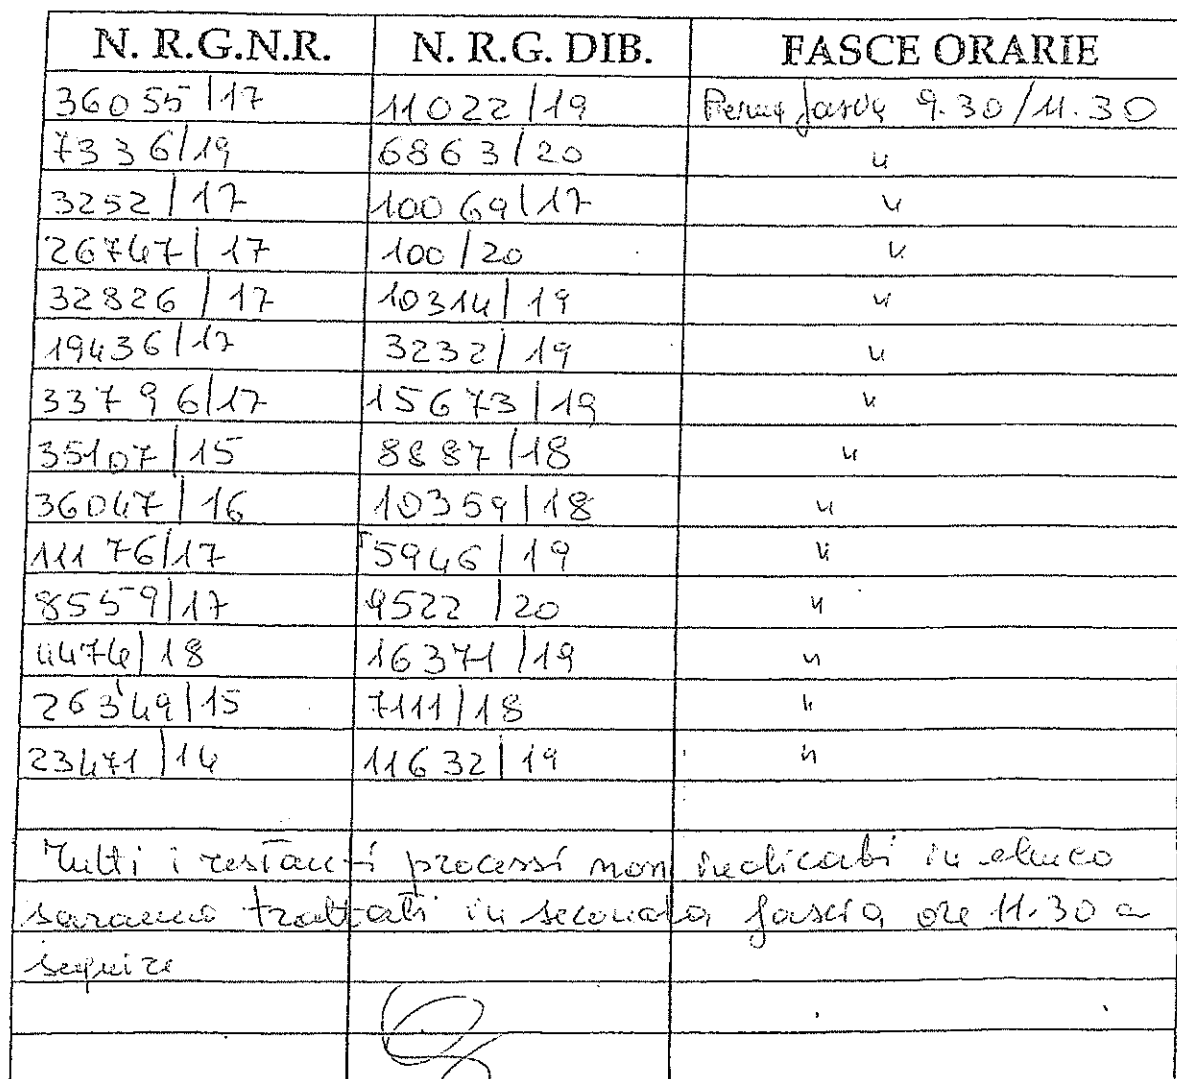 N. R.G.N.R. N. R.G. DIB. FASCE ORARIE
36055/17 11022/19 Prima fascia 9.30/11.30
7336/19 6863/20 "
3252/17 10069/17 "
26747/17 100/20 "
32826/17 10314/19 "
19436/17 3232/19 "
33796/17 15673/19 "
35107/15 8887/18 "
36047/16 10359/18 "
11176/17 5946/19 "
8559/17 9522/20 "
4474/18 16371/19 "
26349/15 7111/18 "
23471/14 11632/19 "
Tutti i restanti processi non indicati in elenco
saranno trattati in seconda fascia ore 11.30 a
seguire